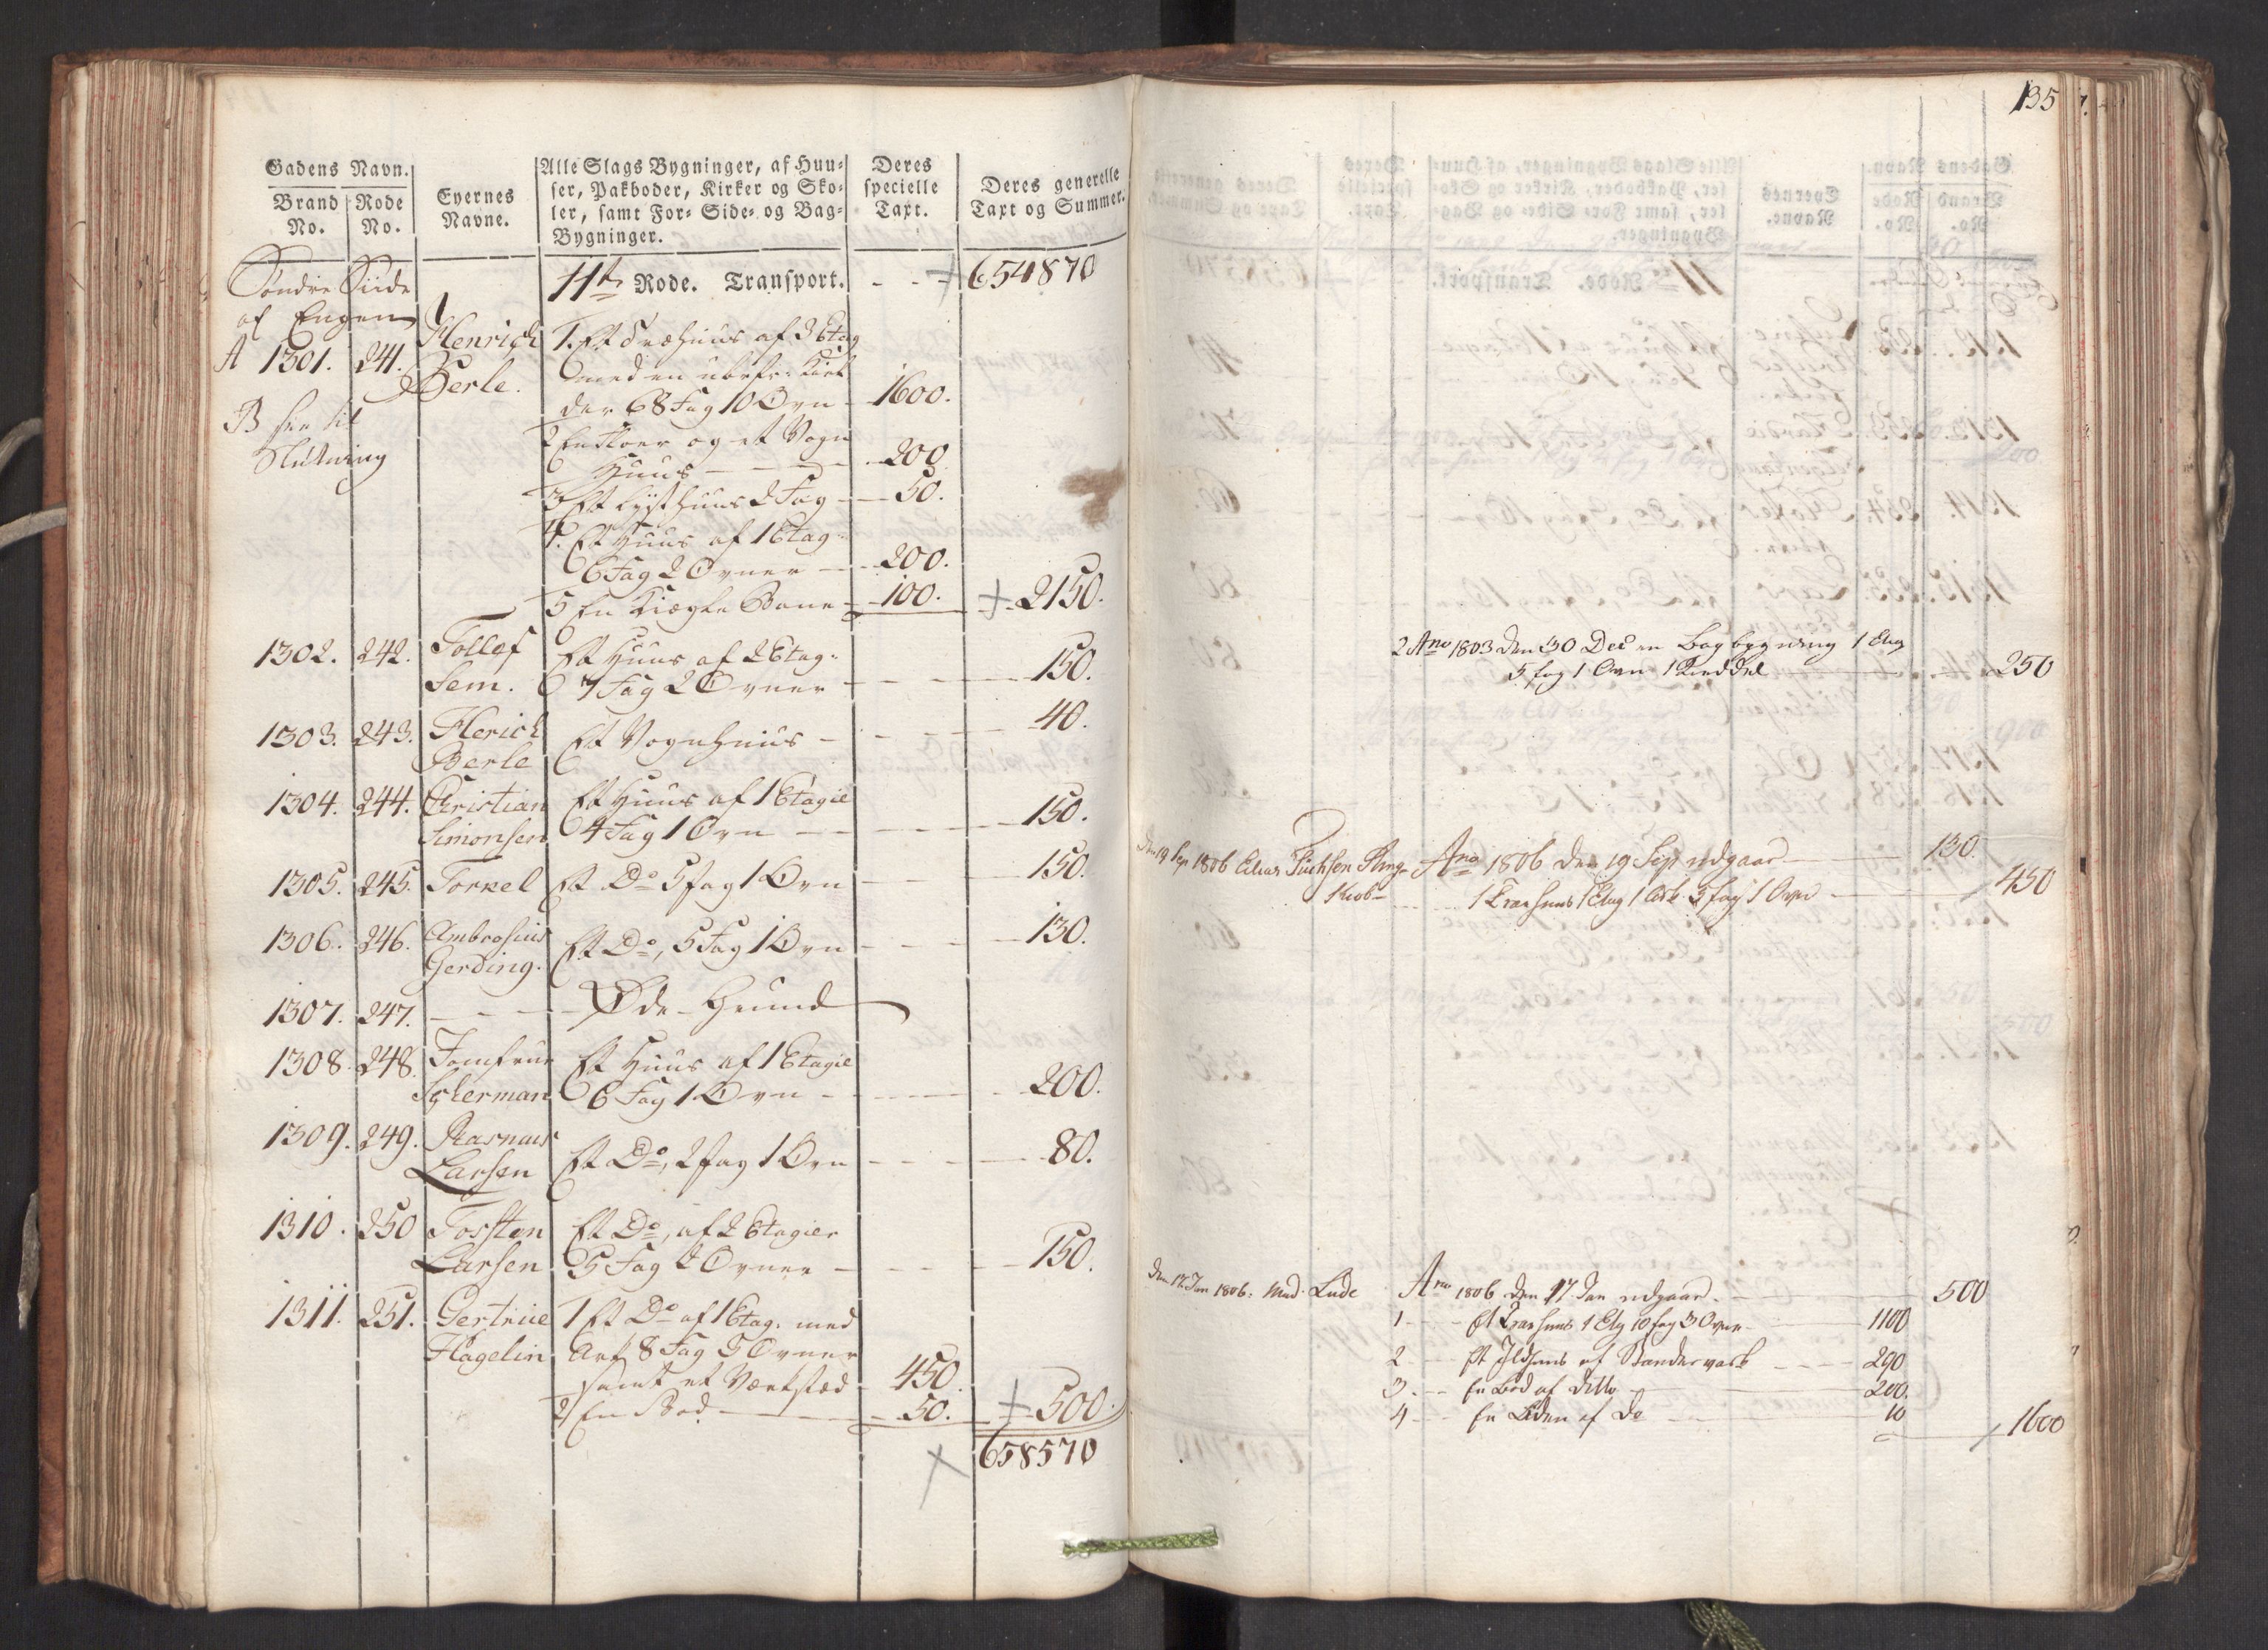 Gadens Navn.
Brand No.
Rode No.
Eyernes Navne.
Alle Slags Bygninger, af Huu-
ser, Pakboder, Kirker og Sko-
ler, samt For- Side- og Bag-
Bygninger.
Deres specielle Taxt.
Deres generelle Taxt og Summer.
Søndre Siide
af Engen
11te Rode. Transport. - - - 654870
A 1301. 241. Henrich Berle.
1. Et Træhuus af 3 Etag
med en
der 68 Fag 10 Ovn - 1600.
B see til
Slutning
2 En og et Vogn
Huus - - - 200.
3 Et Lysthuus 2 Fag - 50.
4. Et Huus af 1 Etag
6 Fag 2 Ovner - 200.
5 En Kiægle Bane - 100. 2150.
1302. 242. Tollef Sem.
Et Huus af 2 Etag.
7 Fag 2 Ovner - 150.
1303. 243. Herich Berle
Et Vognhuus - 40.
1304. 244. Christian Simonsen
Et Huus af 1 Etagie
4 Fag 1 Ovn - 150.
1305. 245. Torkel Et Do 5 fag 1 Ovn - 150.
1306. 246. Ambrosius Gerding.
Et Do, 5 Fag 1 Ovn - 130.
1307. 247. - - - Øde Grund
1308. 248. Jomfrue Sylerman
Et Huus af 1 Etagie
6 Fag 1 Ovn - 200.
1309. 249. Rasmus Larsen
Et Do, 2 fag 1 Ovn - 80.
1310. 250 Torsten Larsen
Et Do, af 2 Etagier
5 Fag 2 Ovner - 150.
1311. 251. Gertrue Hagelin
1 Et Do af 1 Etag. med
Ark 8 Fag 5 Ovner
samt et Værksted - 450.
2/ En Bod - 50. 500.
658570
135
2 Ano 1803 den 30 Decr en Bagbygning 1 Etag
5 fag 1 Ovn 1 Kieddel - 250
Den 19 Sep 1806
Ano 1806 den 19 Sep udgaar - 130.
1 Træhuus 1 Etag 1 Ark 5 fag 1 Ovn - 450
Den 17 Jan 1806. Mad. Lude
Ano 1806 den 17 Jan udgaar. - 500
1 - - Et Træhuus 1 Etg 10 fag 3 Ovne - 1100
2 - - Et Ildhuus af Bindervark - 290
3. - - En Bod af Ditto - 200.
4 - - En Liden af Do - 10 1600